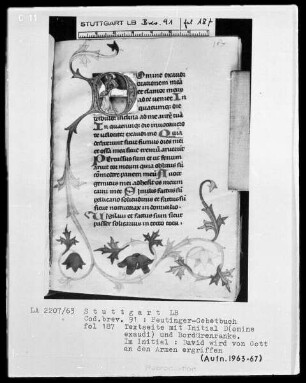 STUTTGART LB Brev. 91 fol 187
C 11
187
Domine exaudi
orationem mea
et clamor meus
ad te veniet In
quacumque die
tribulor inclina ad me aurem tuā
In quacumque die invocavero
te velociter exaudi me Quia
defecerunt sicut fumus dies mei
et ossa mea sicut cremiū aruerūt
Percussus sum ut
cor meum quia oblitus sum
comedere panem meū A voce
gemitus mei adhesit os meum
carni mee Similis factus sum
pellicano solitudinis factus sum
sicut nicticorax in domicilio
Vigilavi et factus sum sicut
passer solitarius in tecto
LA 2207/63 Stuttgart LB
Cod.brev. 91 : Peutinger-Gebetbuch
fol 187 Textseite mit Initial D(omine
exaudi) und Bordürenranke.
Im Initial : David wird von Gott
an den Armen ergriffen
(Aufn.1963-67)